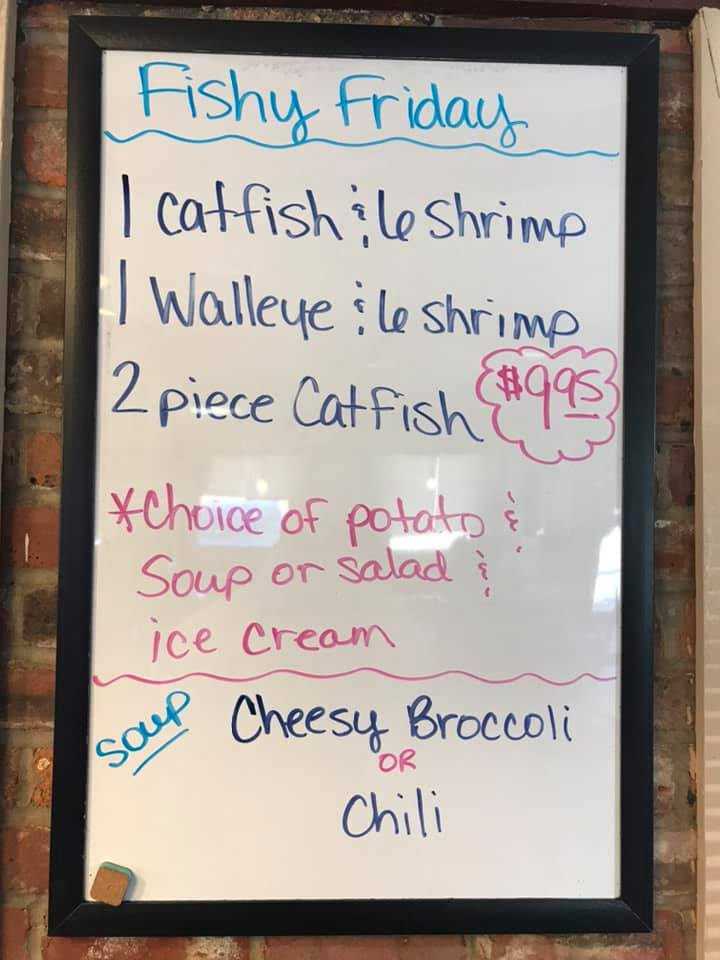 Fishy Friday
1 catfish & 6 Shrimp
1 Walleye & 6 shrimp
2 piece Catfish $9.95
*Choice of potato &
Soup or salad &
ice cream
Soup Cheesy Broccoli
OR
Chili